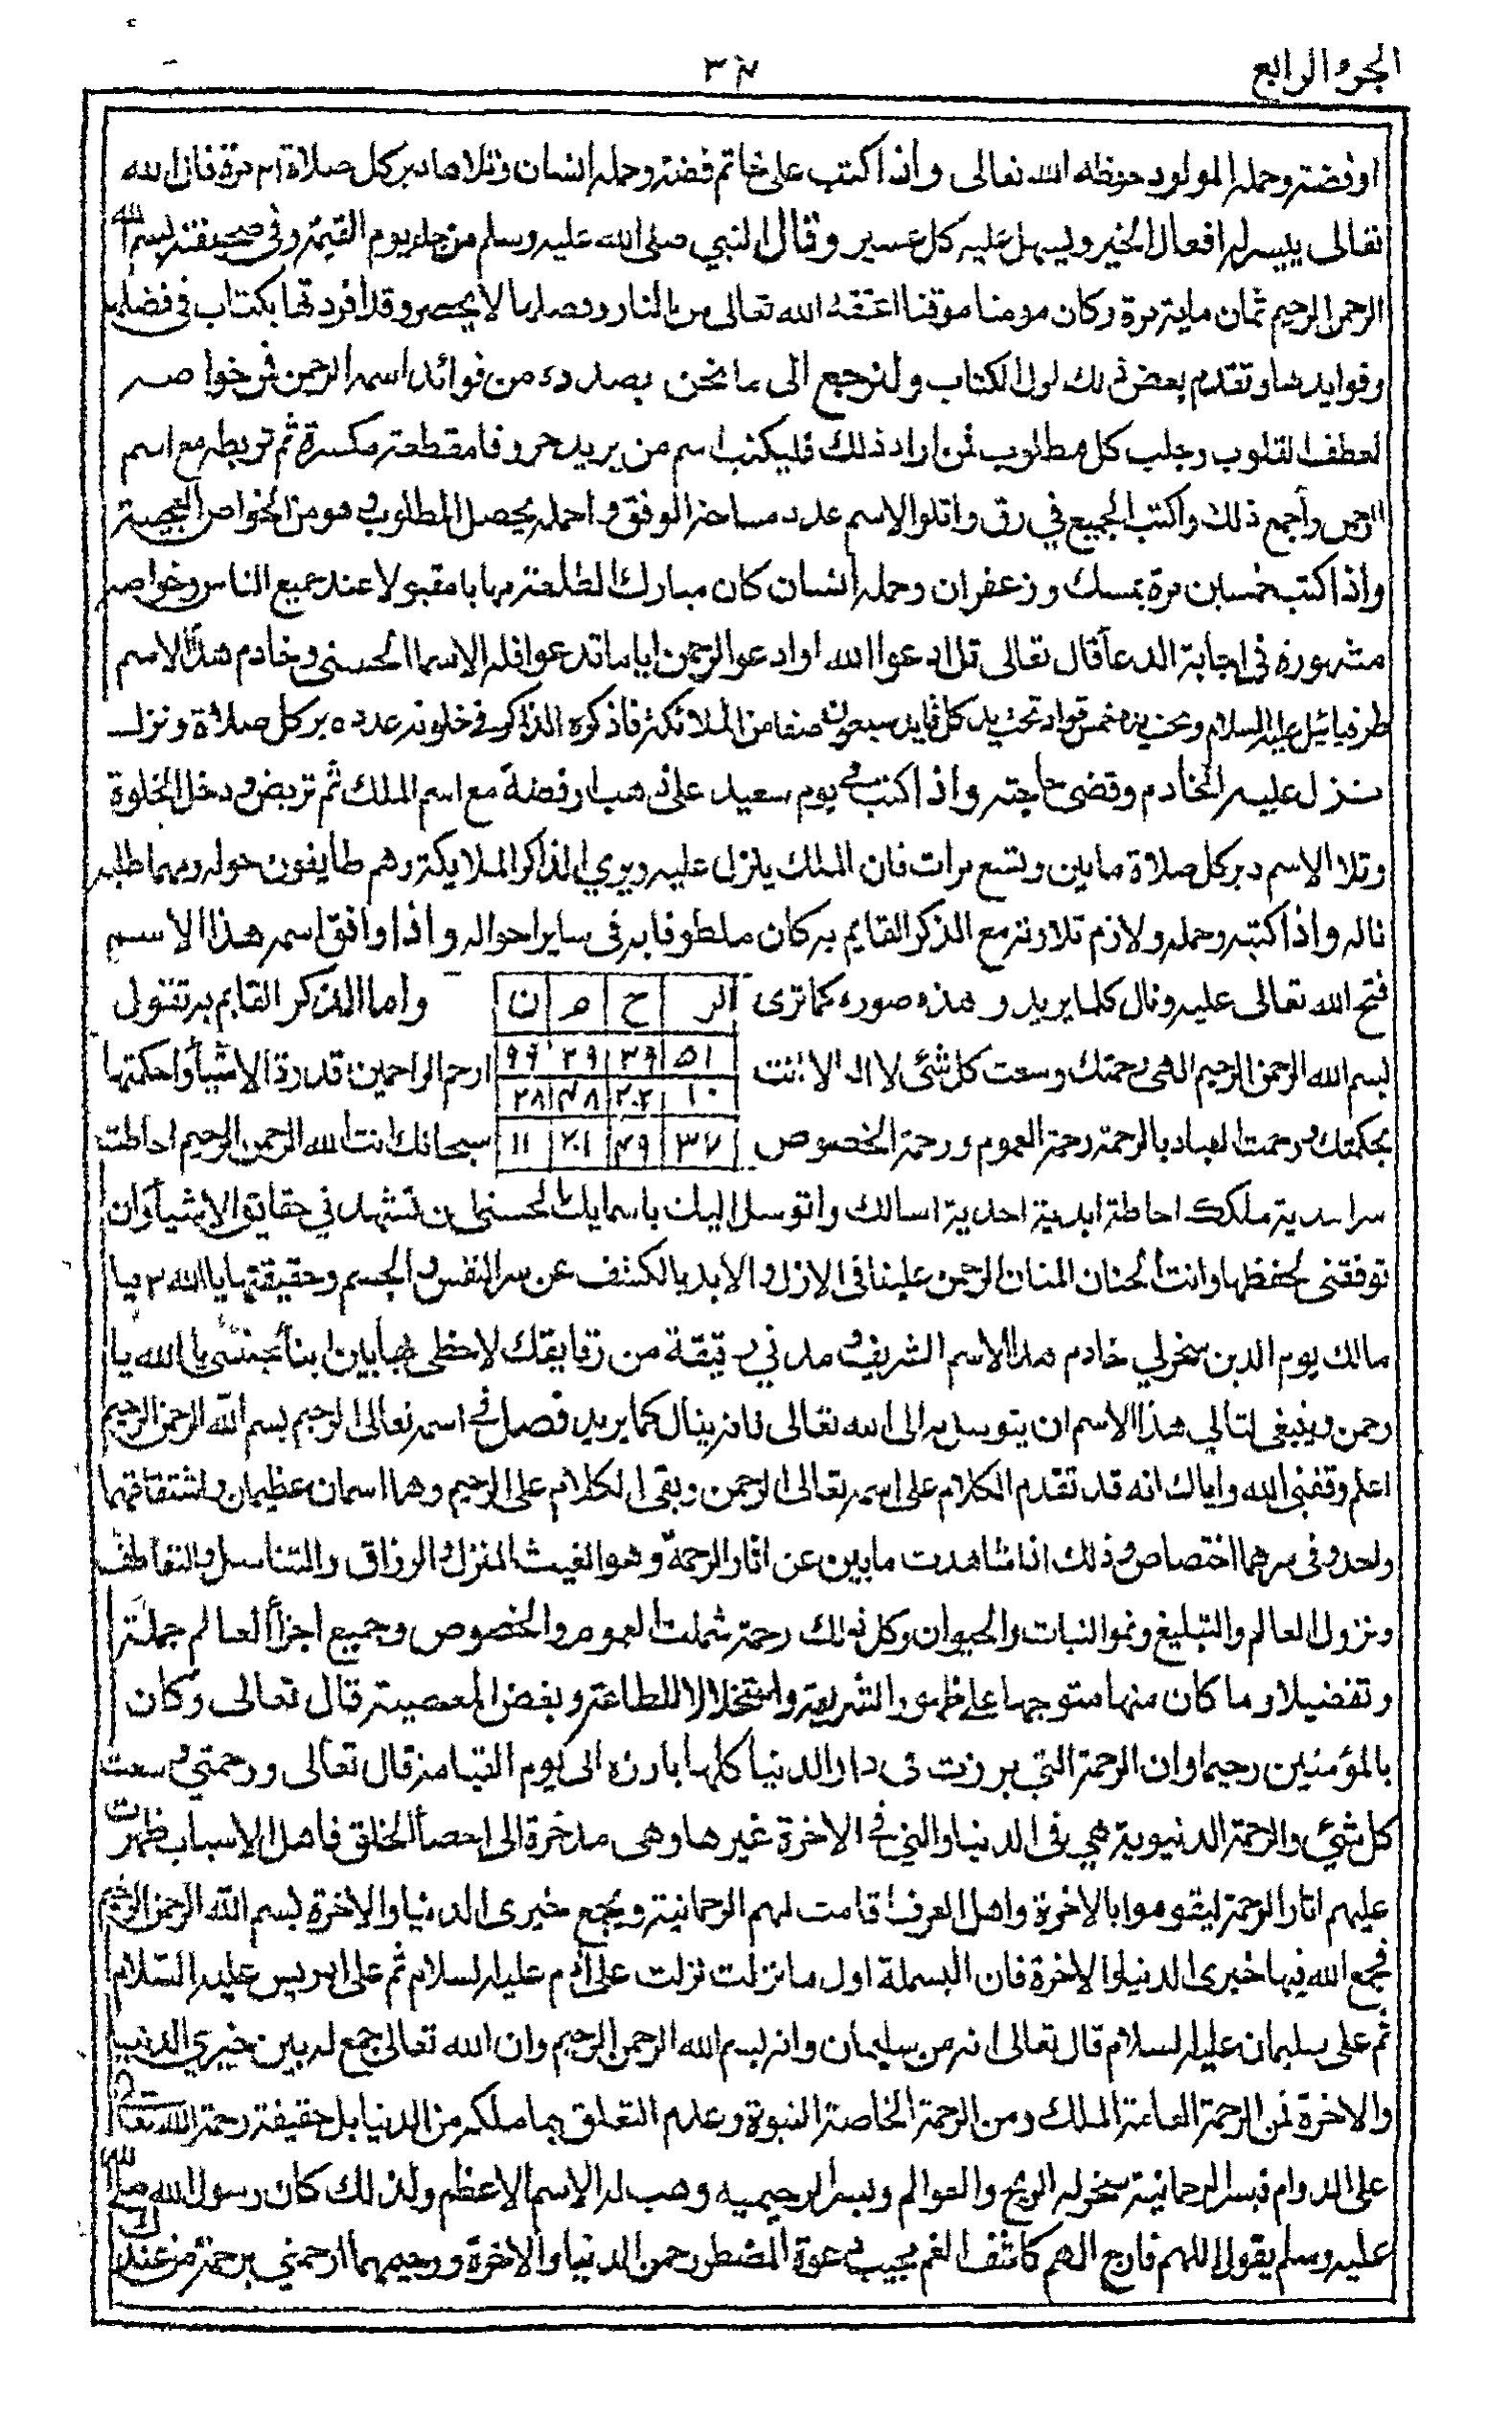 الجزء الرابع
٣٤
او فضة وحمله المولود حفظه الله تعالى واذا كتب على خاتم فضة وحمله انسان وتلاها دبر كل صلاة ٣١ مرة فان الله
تعالى ييسر له افعال الخير ويسهل عليه كل عسير وقال النبي صلى الله عليه وسلم من جاء يوم القيمة وفى صحيفته بسم الله
الرحمن الرحيم ثمان ماية مرة وكان مومنا موقنا اعتقه الله تعالى من النار وفضلها لا يحصر وقد افردتها بكتاب فى فضلها
وفوايدها وتقدم بعض ذلك اول الكتاب ولنرجع الى ما نحن بصدده من فوائد اسمه الرحمن فمن خواصه
لعطف القلوب وجلب كل مطلوب فمن اراد ذلك فليكتب اسم من يريد حروفا مقطعة مكسرة ثم تربطه مع اسم
الرحمن وأجمع ذلك واكتب الجميع في رق واتلوا الاسم عدد مساحة الوفق واحمله يحصل المطلوب وهو من الخواص العجيبة
واذا كتب خمسين مرة بمسك وزعفران وحمله انسان كان مبارك الطلعة مهابا مقبولا عند جميع الناس وخواصه
مشهورة فى اجابة الدعا قال تعالى قل ادعوا الله او ادعوا الرحمن اياما تدعوا فله الاسما الحسنى وخادم هذا الاسم
طرفيائيل عليه السلام وتحت يده خمس قواد تحت يد كل قايد سبعون صفا من الملائكة فاذكره الذاكر في خلوته عدده دبر كل صلاة ونزل
نزل عليه الخادم وقضى حاجته واذا كتب في يوم سعيد على ذهب او فضة مع اسم الملك ثم تريض ودخل الخلوة
وتلا الاسم دبر كل صلاة مايتين وتسع مرات فان الملك ينزل عليه ويري الذاكر الملايكة وهم طايفون حوله ومهما طلبه
ناله واذا كتبه وحمله ولازم تلاوته مع الذكر القايم به كان ملطوفا به فى ساير احواله واذا وافق اسمه هذا الاسم
فتح الله تعالى عليه ونال كلما يريد وهذه صوره كما ترى | الر | ح | م | ن | واما الذكر القايم به تقول
بسم الله الرحمن الرحيم الهى رحمتك وسعت كل شئ لا اله الا انت | ٥١ | ٣٩ | ٢٩ | ٩٩ | ارحم الراحمين قدرة الاشيأ واحكمتها
| ١٠ | ٢٠٢ | ٤٨ | ٢٨ |
بحكمتك ورحمت العباد بالرحمة رحمة العموم ورحمة الخصوص | ٣٧ | ٤٩ | ٢٠١ | ١١ | سبحانك انت الله الرحمن الرحيم احاطت
سرا سدية ملكك احاطة ابدية احدية اسالك واتوسل اليك باسمايك الحسنى ان تشهدني حقايق الاشيأ وان
توفقنى لحفظها وانت الحنان المنان الرحمن علينا فى الازل والابد بالكشف عن سر النفس والجسم وحقيقتها يا الله ٣ يا
مالك يوم الدين سخر لي خادم هذا الاسم الشريف ومدني رقيقة من رقايقك لاحظى بها بين ابنأ جنسى يا الله يا
رحمن وينبغى لتالي هذا الاسم ان يتوسل به الى الله تعالى فانه ينال كما يريد فصل في اسمه تعالى الرحيم بسم الله الرحمن الرحيم
اعلم وفقنى الله واياك انه قد تقدم الكلام على اسمه تعالى الرحمن وبقى الكلام على الرحيم وهما اسمان عظيمان واشتقاقهما
واحد وفى سرهما اختصاص وذلك اذا شاهدت ما يبن عن اثار الرحمة وهو الغيث المنزل والرزاق والتناسل والتعاطف
ونزول العالم والتبليغ ونمو النبات والحيوان وكل ذلك رحمة شملت العموم والخصوص وجميع اجزأ العالم جملة
وتفضيلا وما كان منها متوجها على ظهور الشريعة واستخلالا للطاعة وبغض المعصية قال تعالى وكان
بالمؤمنين رحيما وان الرحمة التى برزت فى دار الدنيا كلها بارزه الى يوم القيامة قال تعالى ورحمتي وسعت
كل شئ والرحمة الدنيوية هي فى الدنيا والتي في الاخرة غيرها وهى مدخرة الى احصأ الخلق فاهل الاسباب ظهرت
عليهم اثار الرحمة ليقوموا بالاخرة واهل العرف اقامت لهم الرحمانية ويجمع خيرى الدنيا والاخرة بسم الله الرحمن الرحيم
فجمع الله فيها خيرى الدنيا والاخرة فان البسملة اول ما نزلت نزلت على ادم عليه السلام ثم على ادريس عليه السلام
ثم على سليمان عليه السلام قال تعالى انه من سليمان وانه بسم الله الرحمن الرحيم وان الله تعالى جمع له بين خيري الدنيا
والاخرة فمن الرحمة العامة الملك ومن الرحمة الخاصة النبوة وعدم التعلق بما ملكه من الدنيا بل حقيقة رحمة الله تعالى
على الدوام فبسر الرحمانية سخر له الريح والعوالم وبسر الرحيميه وهب له الاسم الاعظم ولذلك كان رسول الله صلى الله
عليه وسلم يقول اللهم فارج الهم كاشف الغم مجيب دعوة المضطر رحمن الدنيا والاخرة ورحيمهما ارحمني برحمة من عندك